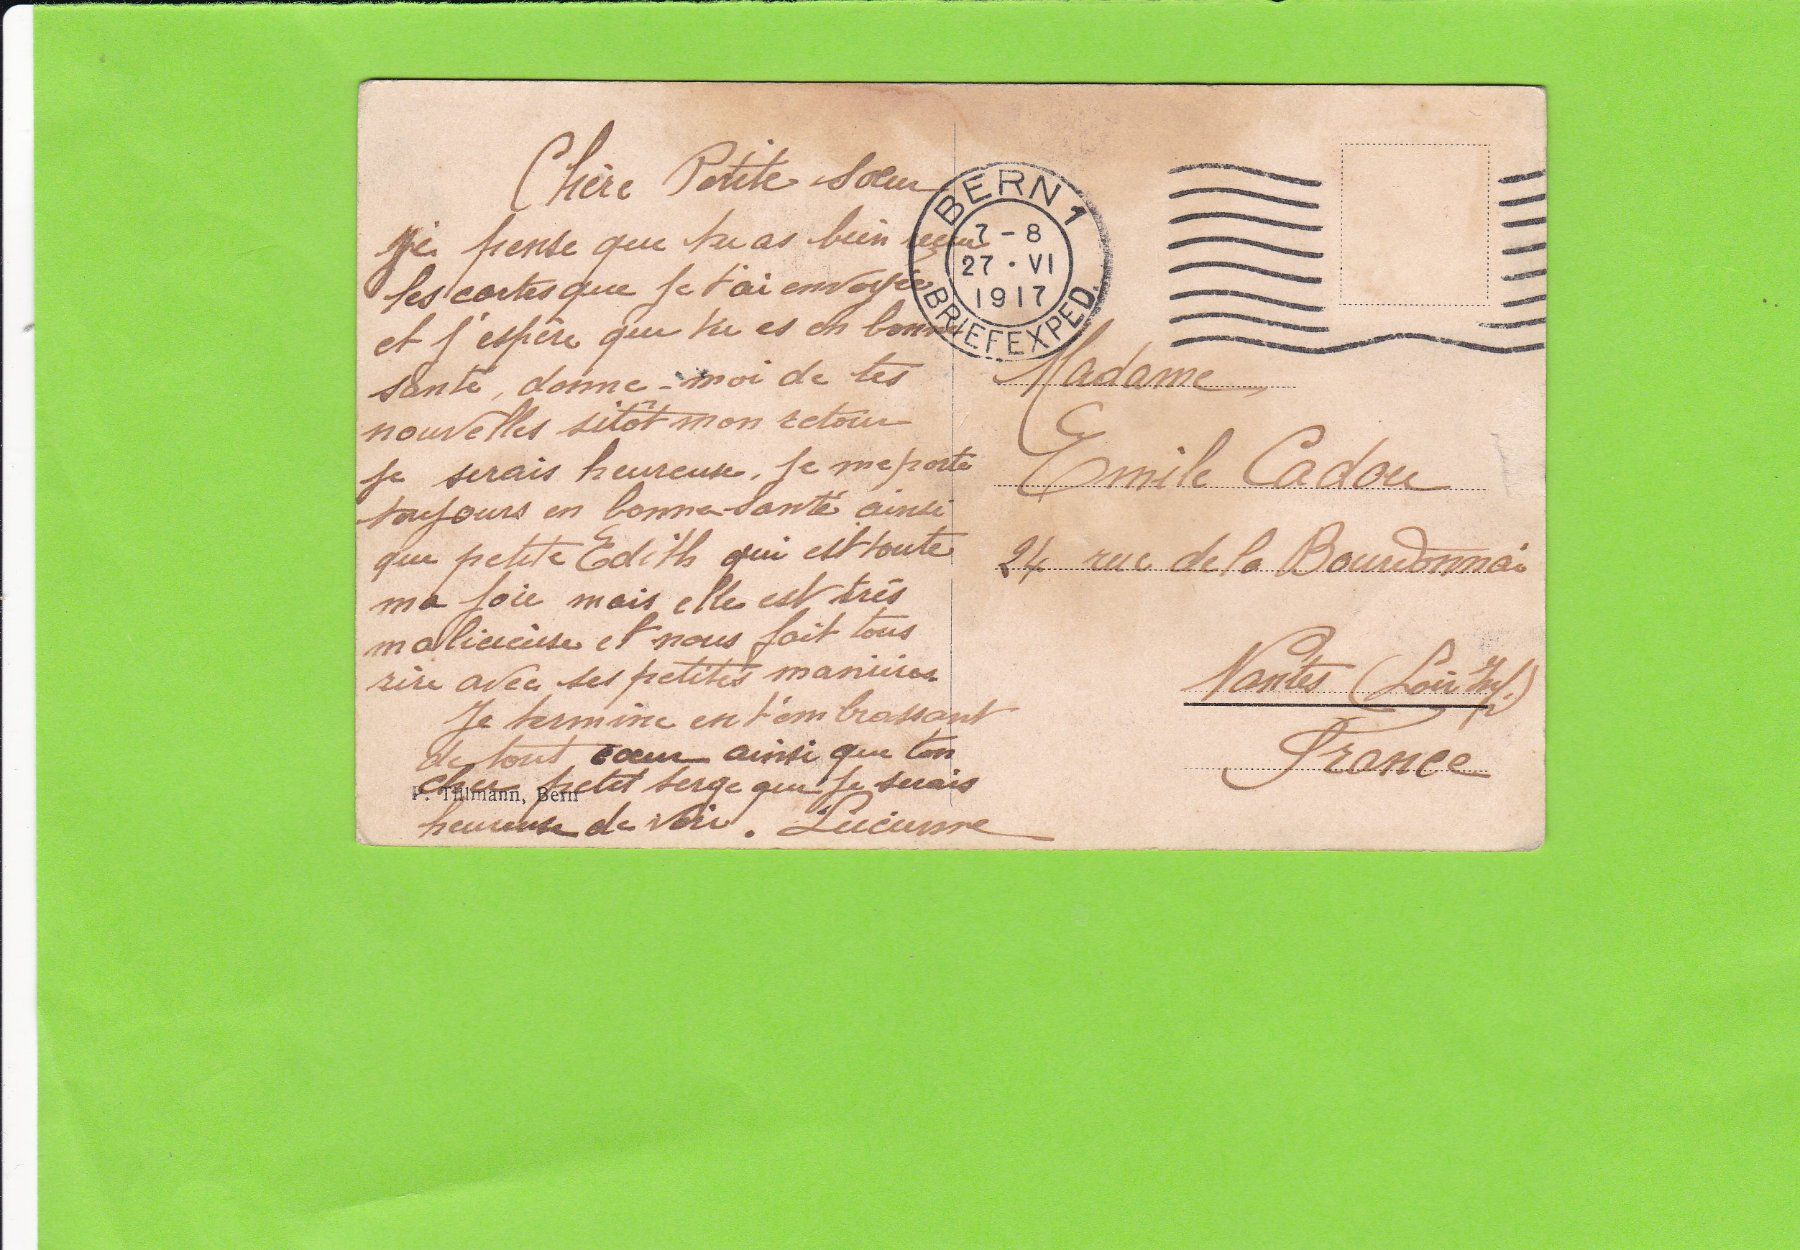 Chère Petite Sœur
Je pense que tu as bien reçu
les cartes que je t'ai envoyée
et j'espère que tu es en bonne
santé, donne-moi de tes
nouvelles sitôt mon retour
je serais heureuse, je me porte
toujours en bonne santé ainsi
que petite Edith qui est toute
ma joie mais elle est très
malicieuse et nous fait tous
rire avec ses petites manières
Je termine en t'embrassant
de tout cœur ainsi que ton
cher petit Serge que je serais
heureuse de voir. Lucienne
P. Tillmann, Bern
BERN 1
7-8
27·VI
1917
BRIEFEXPED.
Madame,
Emile Cadou
24 rue de la Bourdonnai
Nantes (Loire Inf.)
France